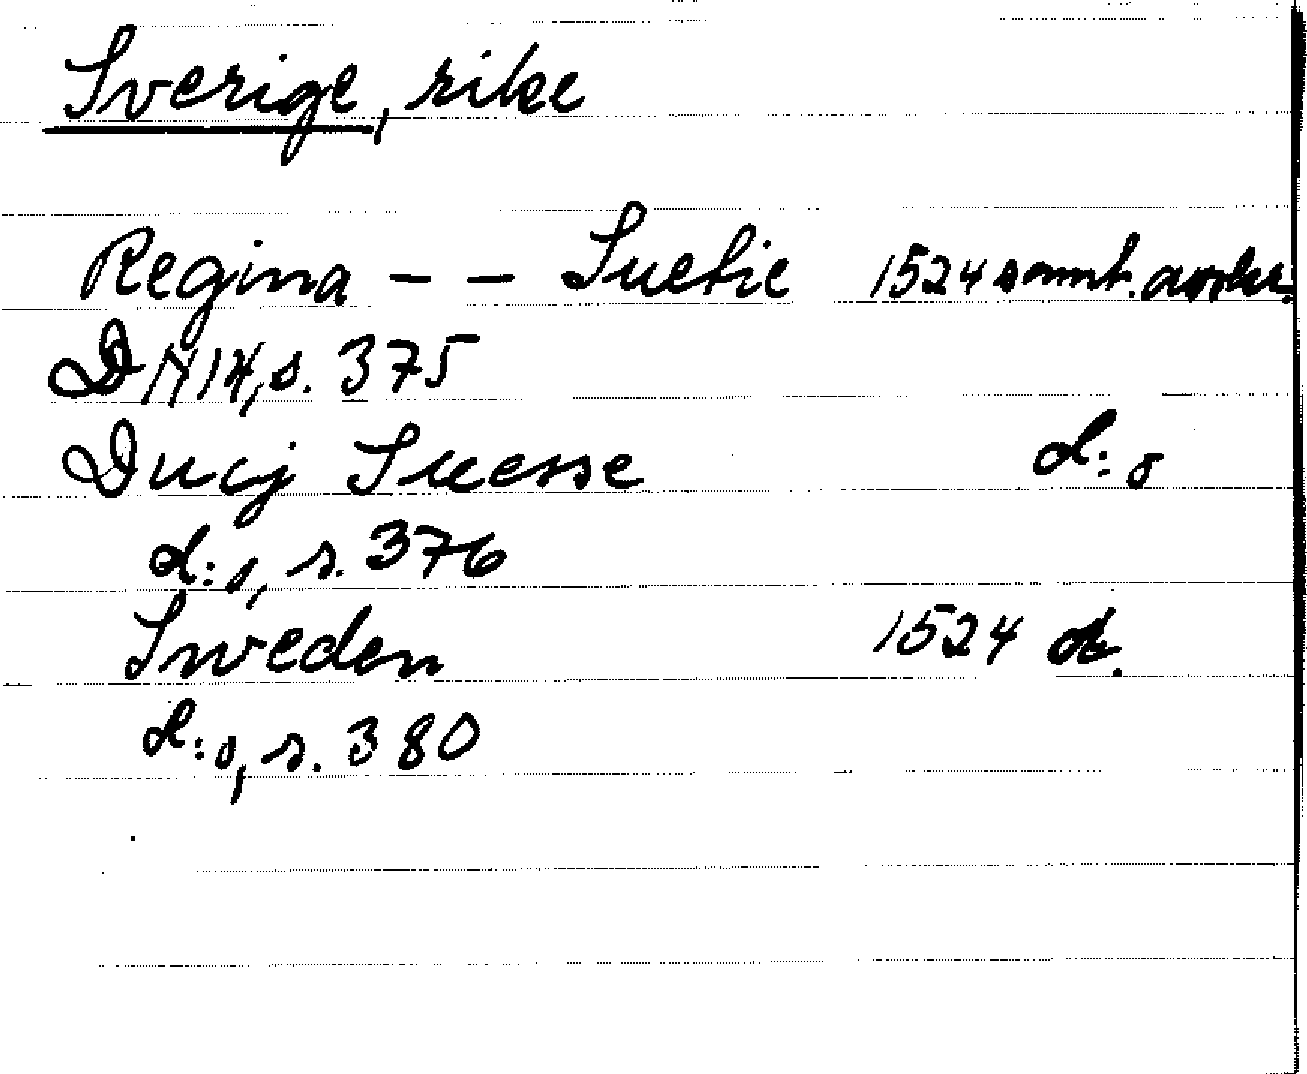 Sverige, rike
Regina - - Suetie 1524 samt. avskr.
DN 14, s. 375
Ducij Suesse d:o
d:o, s. 376
Sweden 1524 or.
d:o, s. 380